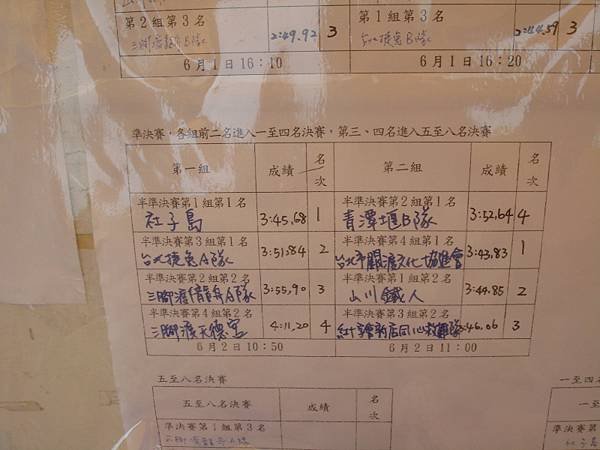 第2組第3名 2:49.92 3
6月1日16:10
第1組第3名 3
6月1日16:20
準決賽，各組前二名進入一至四名決賽，第三、四名進入五至八名決賽
第一組 成績 名次 第二組 成績 名次
半準決賽第1組第1名 半準決賽第2組第1名
社子島 3:45.68 1 青潭堰B隊 3:52.64 4
半準決賽第3組第1名 半準決賽第4組第1名
台北捷兔A隊 3:51.84 2 台北市觀濤文化協進會 3:43.83 1
半準決賽第2組第2名 半準決賽第1組第2名
三腳渡龍舟A隊 3:55.90 3 山川鐵人 3:44.85 2
半準決賽第4組第2名 半準決賽第3組第2名
三腳渡天德宮 4:11.20 4 紅十字會新店同心救難隊 3:46.06 3
6月2日10:50 6月2日11:00
五至八名決賽
五至八名決賽 成績 名次
準決賽第1組第3名
一至四名
一至
準決賽第
社子島